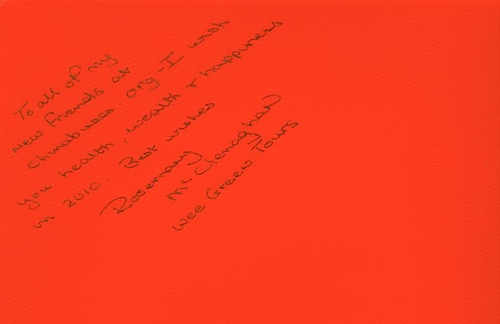 To all of my
new friends at
chinabuses.org - I wish
you health, wealth & happiness
in 2010. Best wishes
Rosemary
McClenaghan
Wee Green Tours